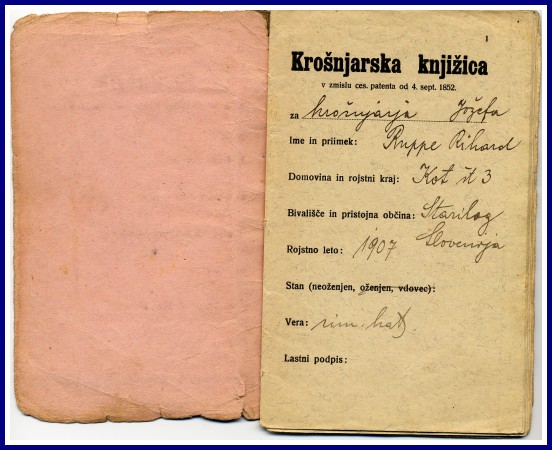 1
Krošnjarska knjižica
v zmislu ces. patenta od 4. sept. 1852.
za krošnjarja Jožefa
Ime in priimek: Ruppe Rihard
Domovina in rojstni kraj: Kot št 3
Bivališče in pristojna občina: Starilog
Slovenija
Rojstno leto: 1907
Stan (neoženjen, oženjen, vdovec):
Vera: rim. kat.
Lastni podpis: